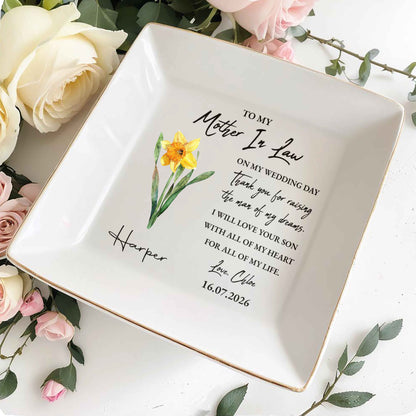 TO MY
Mother In Law
ON MY WEDDING DAY
Thank you for raising
the man of my dreams.
I WILL LOVE YOUR SON
WITH ALL OF MY HEART
FOR ALL OF MY LIFE.
Love, Chloe
16.07.2026
Harper